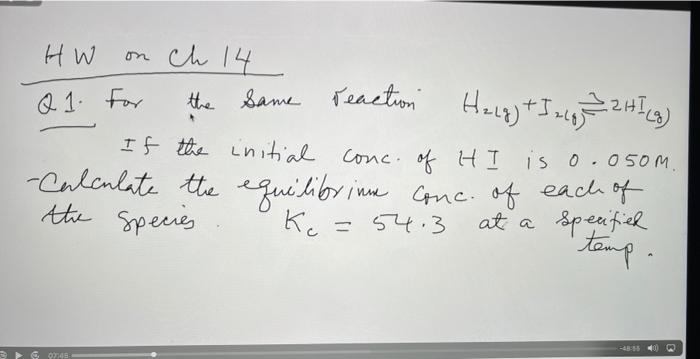 HW on Ch 14
Q1. For the same reaction H₂(g) + I₂(g) ⇌ 2HI(g)
If the initial conc. of HI is 0.050M.
-Calculate the equilibrium conc. of each of
the species. Kc = 54.3 at a specified
temp.
07:45 -48:55